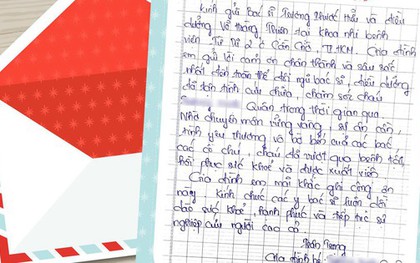 kính gửi bác sĩ Trương Phước Hữu và điều
dưỡng Võ Hoàng Thiên tại khoa nhi bệnh
viện Từ Dũ 2 ở Cần Giờ, TP.HCM. Gia đình
em gửi lời cảm ơn chân thành và sâu sắc
nhất đến toàn thể đội ngũ bác sĩ, điều dưỡng
đã tận tình cứu chữa, chăm sóc cháu
Quãng trong thời gian qua
Nhờ chuyên môn vững vàng, sự ân cần,
tình yêu thương và bền của các bác
các cô chú, cháu đã vượt qua bệnh tật,
hồi phục sức khoẻ và được xuất viện
Gia đình em mãi khắc ghi công ơn
này. Kính chúc các y bác sĩ luôn dồi
dào sức khoẻ, hạnh phúc và tiếp tục sự
nghiệp cứu người cao cả.
Trân Trọng
Gia đình bé